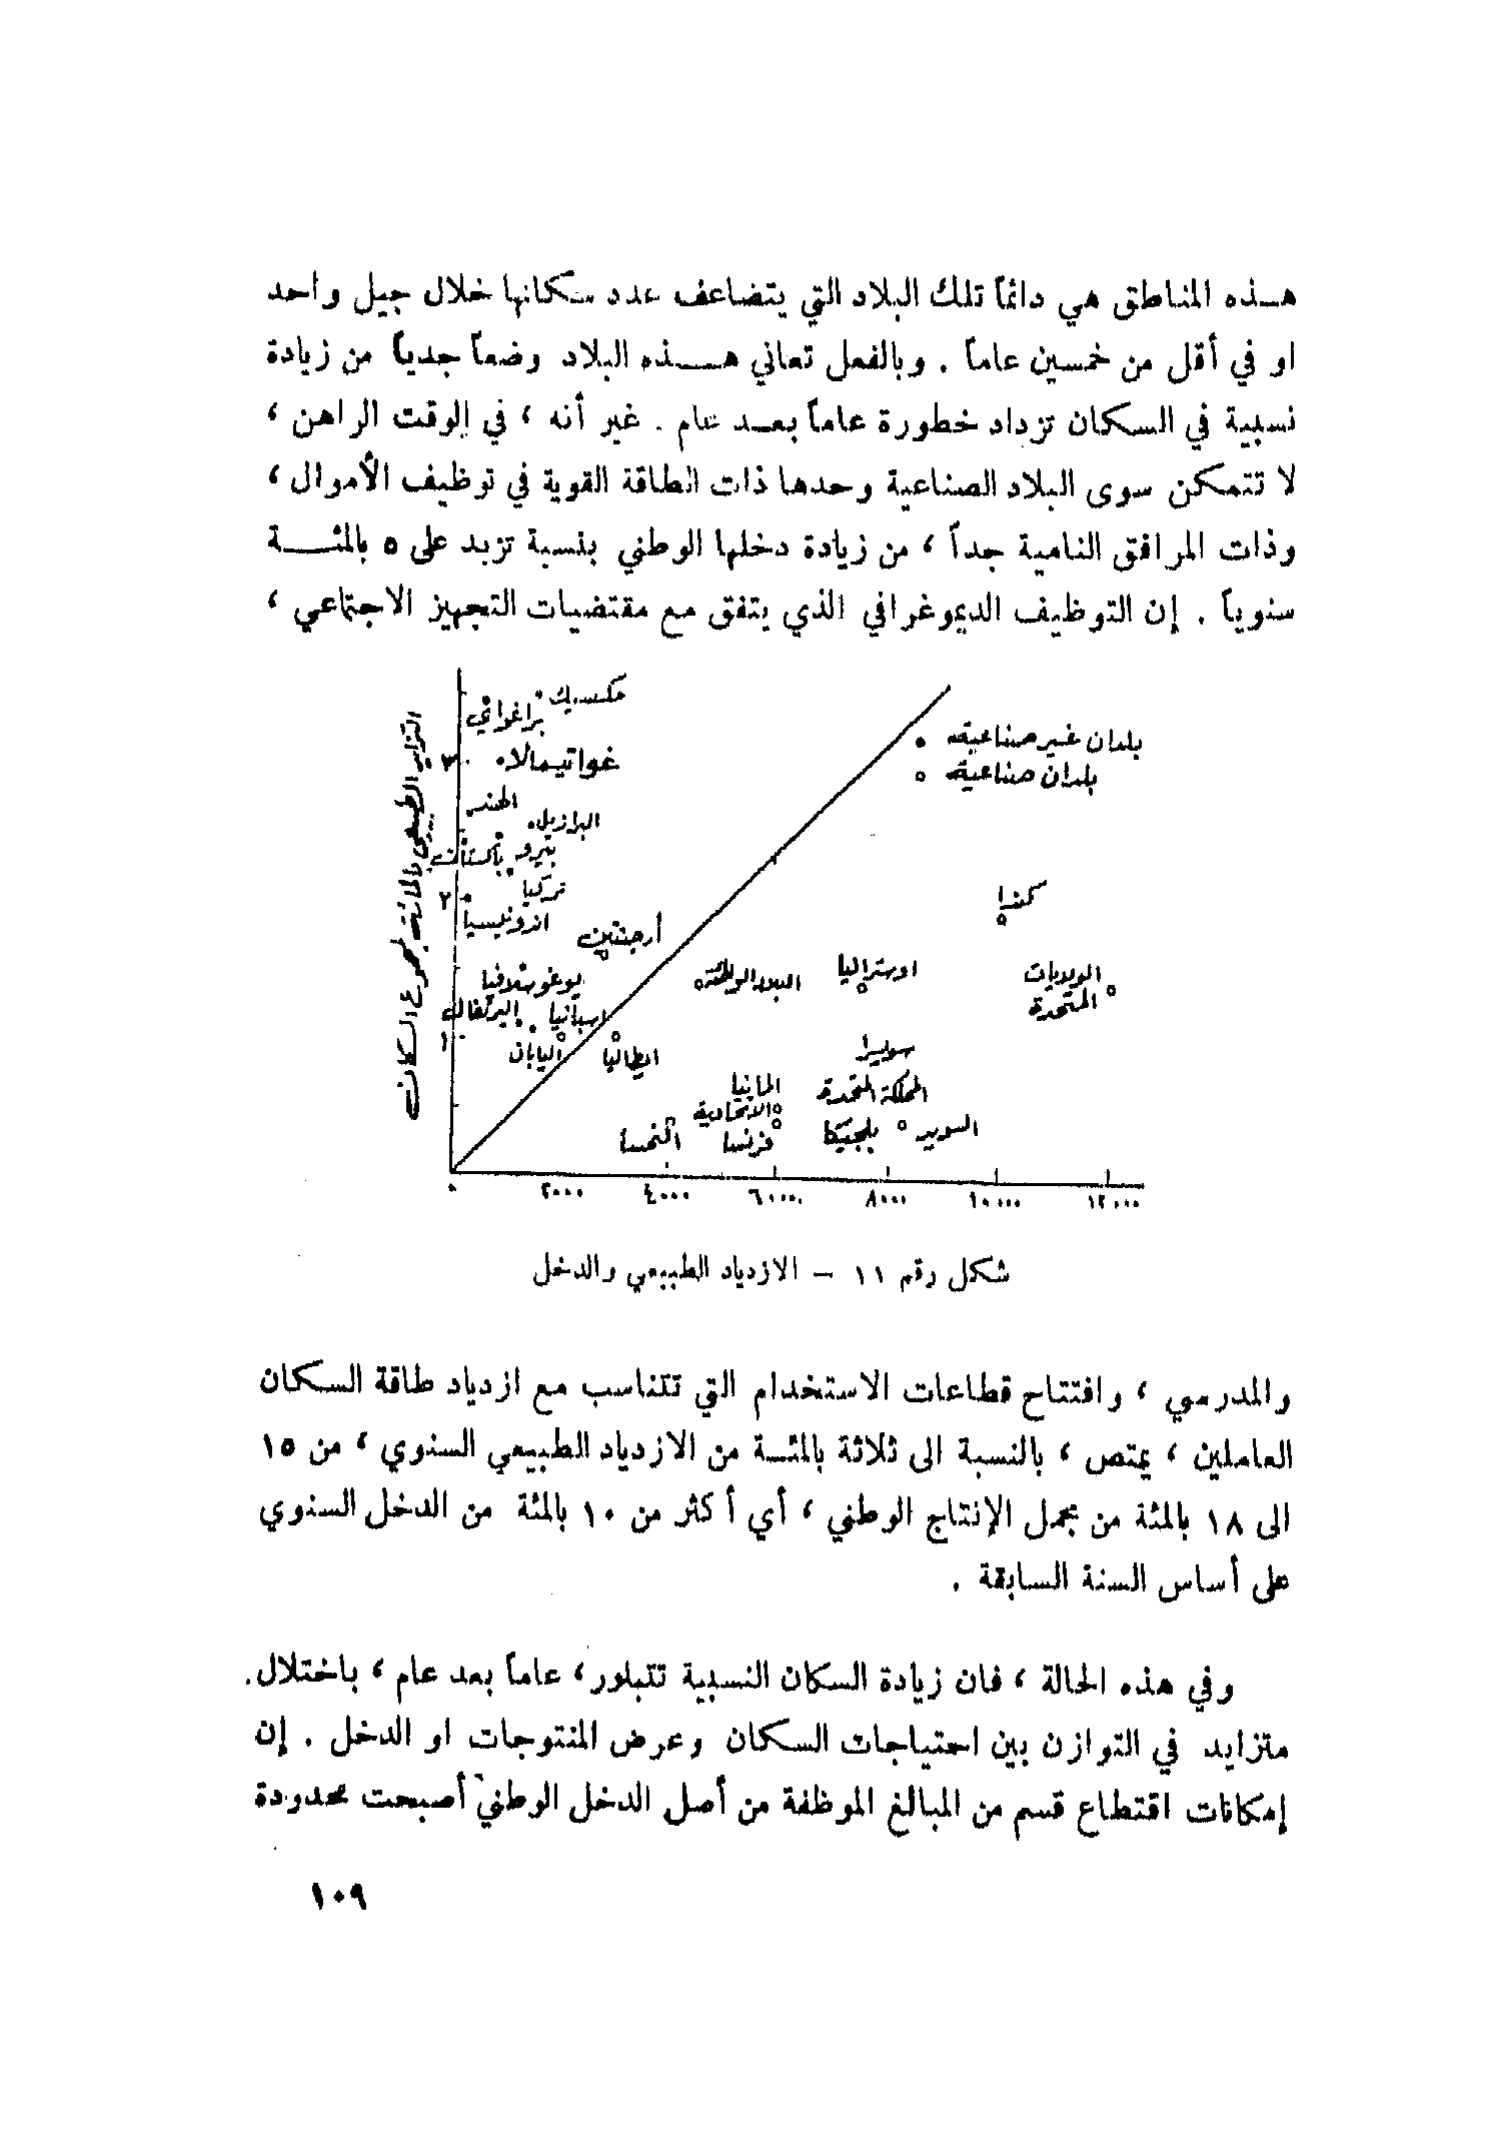 هذه المناطق هي دائماً تلك البلاد التي يتضاعف عدد سكانها خلال جيل واحد
او في أقل من خمسين عاماً . وبالفعل تعاني هذه البلاد وضعاً جدياً من زيادة
نسبية في السكان تزداد خطورة عاماً بعد عام . غير أنه ، في الوقت الراهن ،
لا تتمكن سوى البلاد الصناعية وحدها ذات الطاقة القوية في توظيف الأموال ،
وذات المرافق النامية جداً ، من زيادة دخلها الوطني بنسبة تزيد على ٥ بالمئة
سنوياً . إن التوظيف الديموغرافي الذي يتفق مع مقتضيات التجهيز الاجتماعي ،
التزايد الطبيعي بالمائة لمجموع السكان
مكسيك
براغواي
بلدان غير صناعية
٣
غواتيمالا
بلدان صناعية
الهند
البرازيل
بيرو
باكستان
تركيا
٢
كندا
اندونيسيا
أرجنتين
اوستراليا
البلاد الواطئة
الولايات
المتحدة
يوغوسلافيا
البرتغال
اسبانيا
١
اليابان
ايطاليا
سويسرا
المانيا
الاتحادية
المملكة المتحدة
السويد
بلجيكا
فرنسا
النمسا
٠ ٢٠٠٠ ٤٠٠٠ ٦٠٠٠ ٨٠٠٠ ١٠٠٠٠ ١٢٠٠٠
شكل رقم ١١ – الازدياد الطبيعي والدخل
والمدرسي ، وافتتاح قطاعات الاستخدام التي تتناسب مع ازدياد طاقة السكان
العاملين ، يمتص ، بالنسبة الى ثلاثة بالمئة من الازدياد الطبيعي السنوي ، من ١٥
الى ١٨ بالمئة من مجمل الإنتاج الوطني ، أي أكثر من ١٠ بالمئة من الدخل السنوي
على أساس السنة السابقة .
وفي هذه الحالة ، فان زيادة السكان النسبية تتبلور ، عاماً بعد عام ، باختلال
متزايد في التوازن بين احتياجات السكان وعرض المنتوجات او الدخل . إن
إمكانات اقتطاع قسم من المبالغ الموظفة من أصل الدخل الوطني أصبحت محدودة
١٠٩